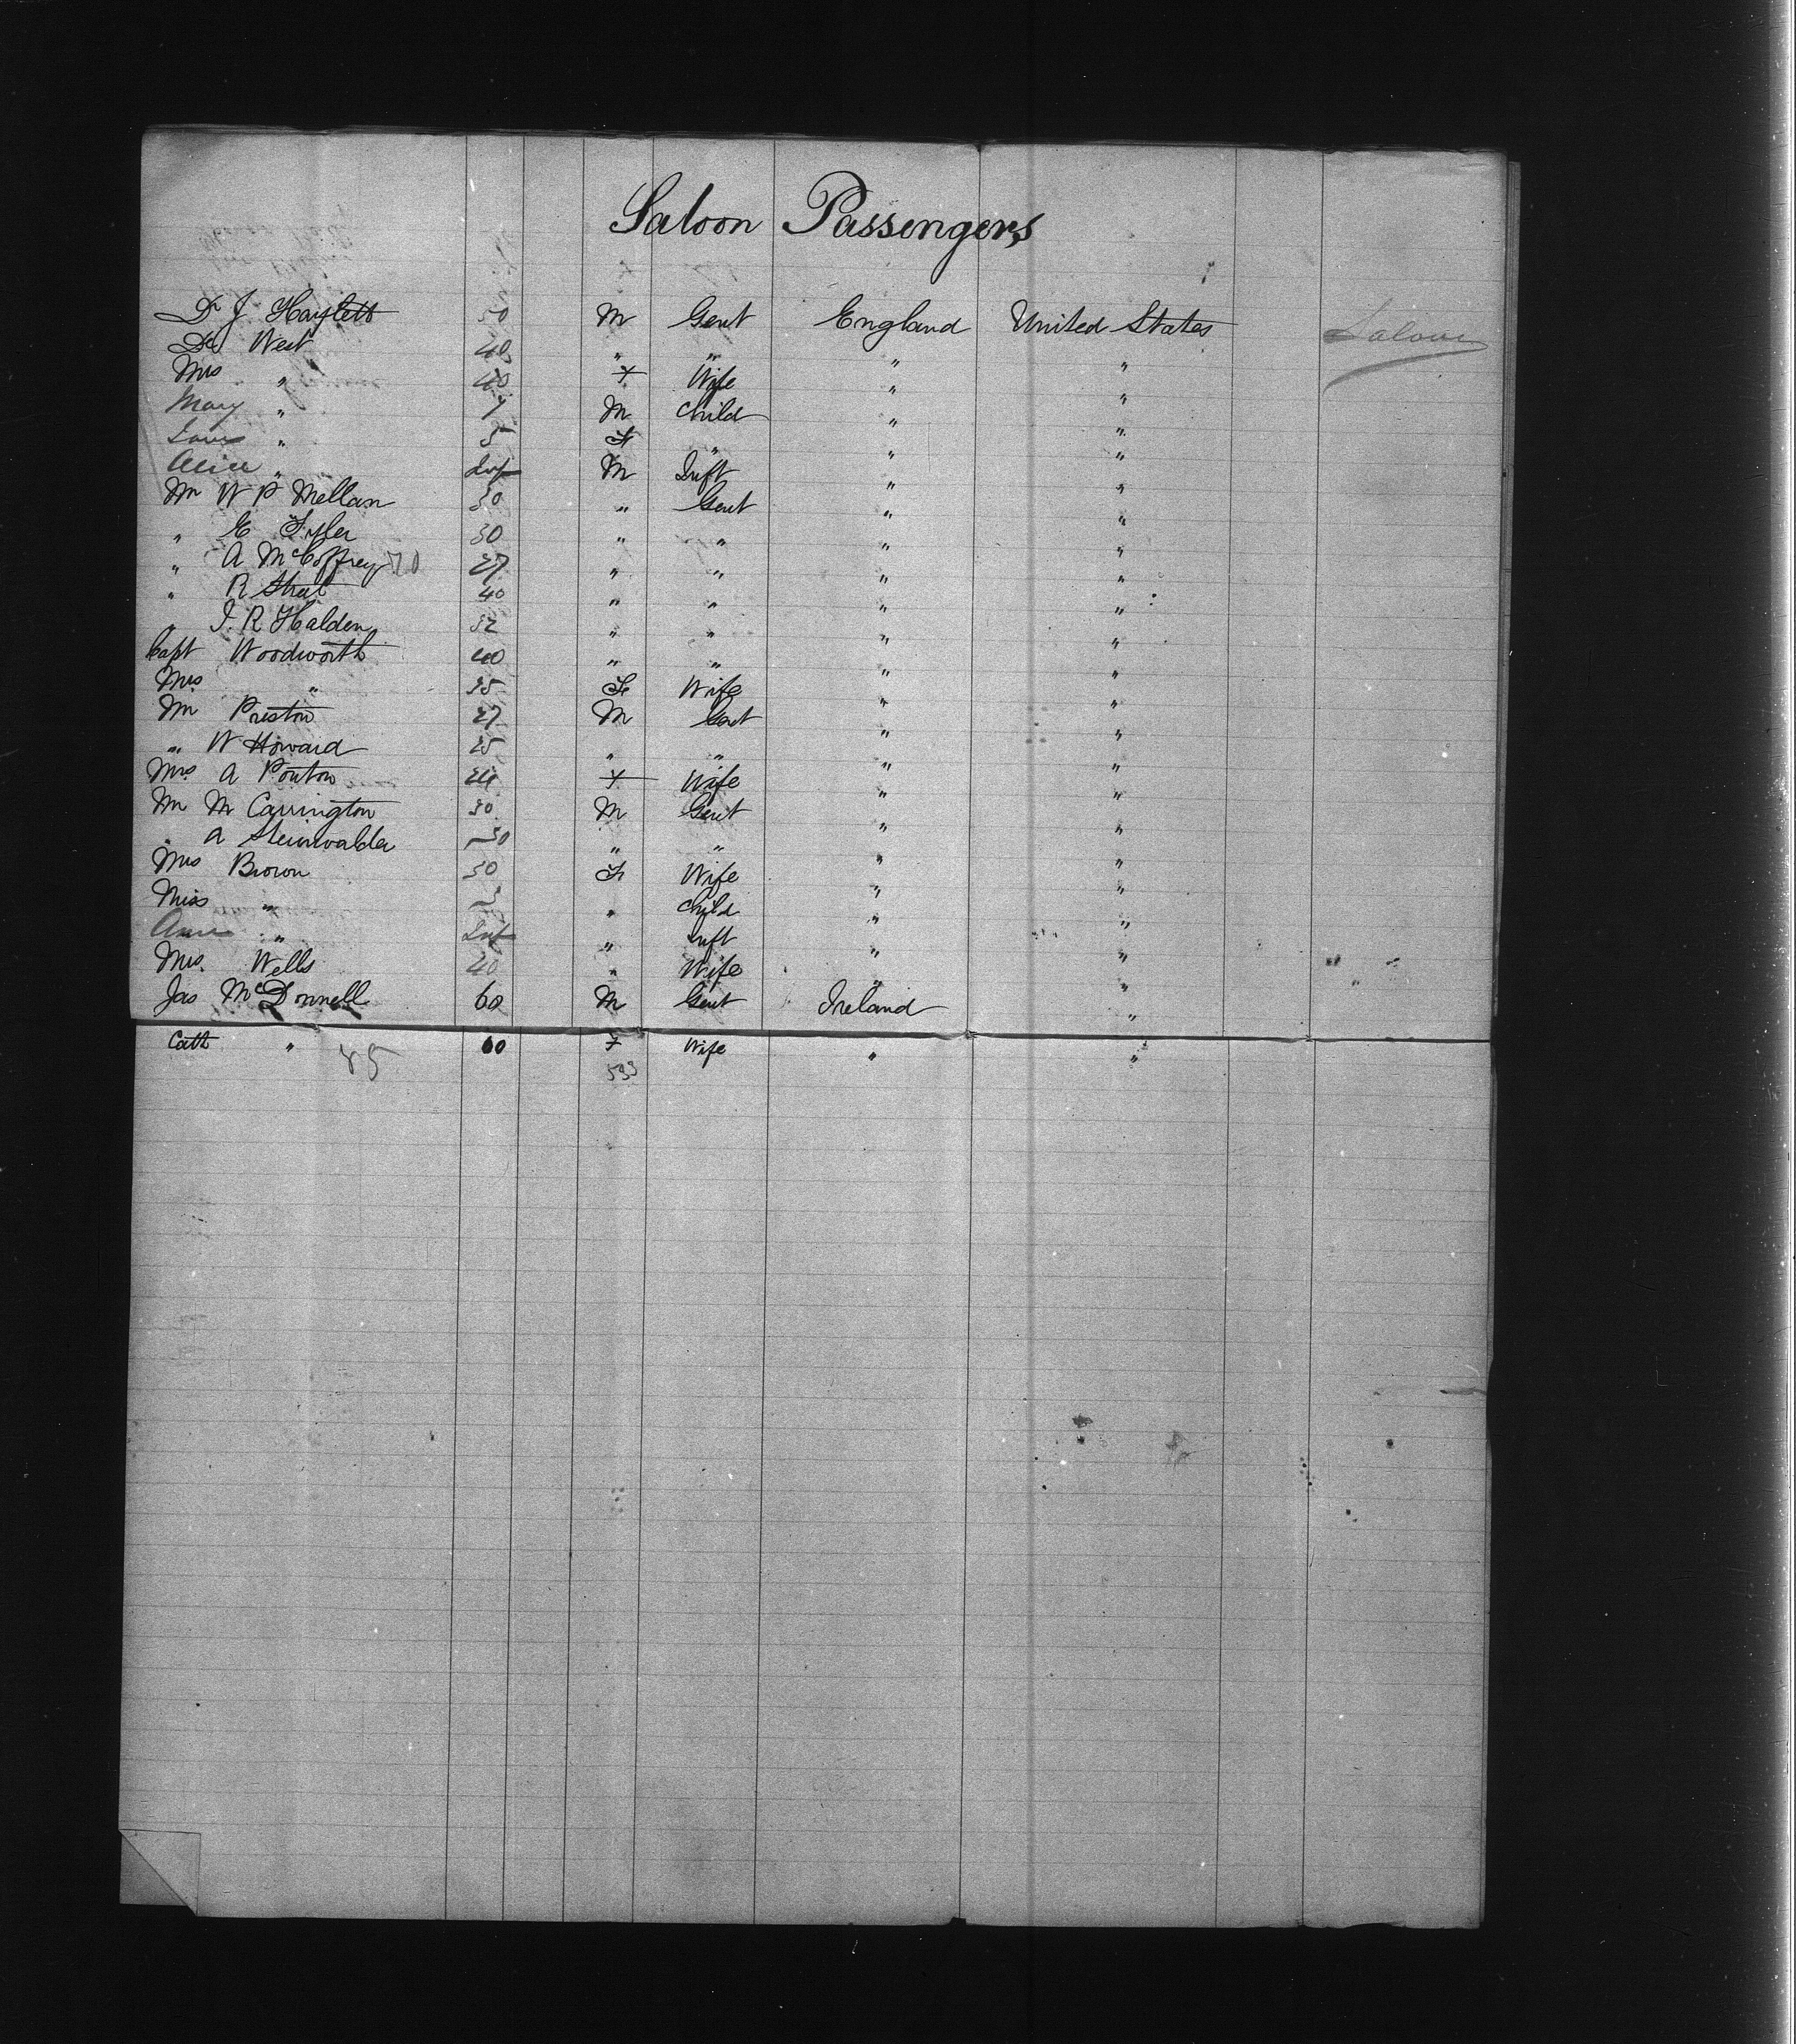 Saloon Passengers
Dr J Haylett 50 M Gent England United States Saloon
Dr West 40 " " " "
Mrs " 40 F Wife " "
Mary " 7 M Child " "
Louis " 5 F " " "
Alice " Inf M Inft " "
Mr W P Mellan 30 " Gent " "
" E Tyler 30 " " " "
" A McCoffrey 27 " " " "
" R 40 " " " "
" J. R Halden 32 " " " "
Capt Woodworth 40 " " " "
Mrs " 35 F Wife " "
Mr Preston 27 M Gent " "
" W Howard 25 " " " "
Mrs A Ponton 24 F Wife " "
Mr M Carrington 30 M Gent " "
" A Steinwalder 30 " " " "
Mrs Brown 30 F Wife " "
Miss " 3 " Child " "
" Inf " Inft " "
Mrs. Wells 40 " Wife " "
Jas McDonnell 60 M Gent Ireland "
Cath " 60 F Wife " "
85 533